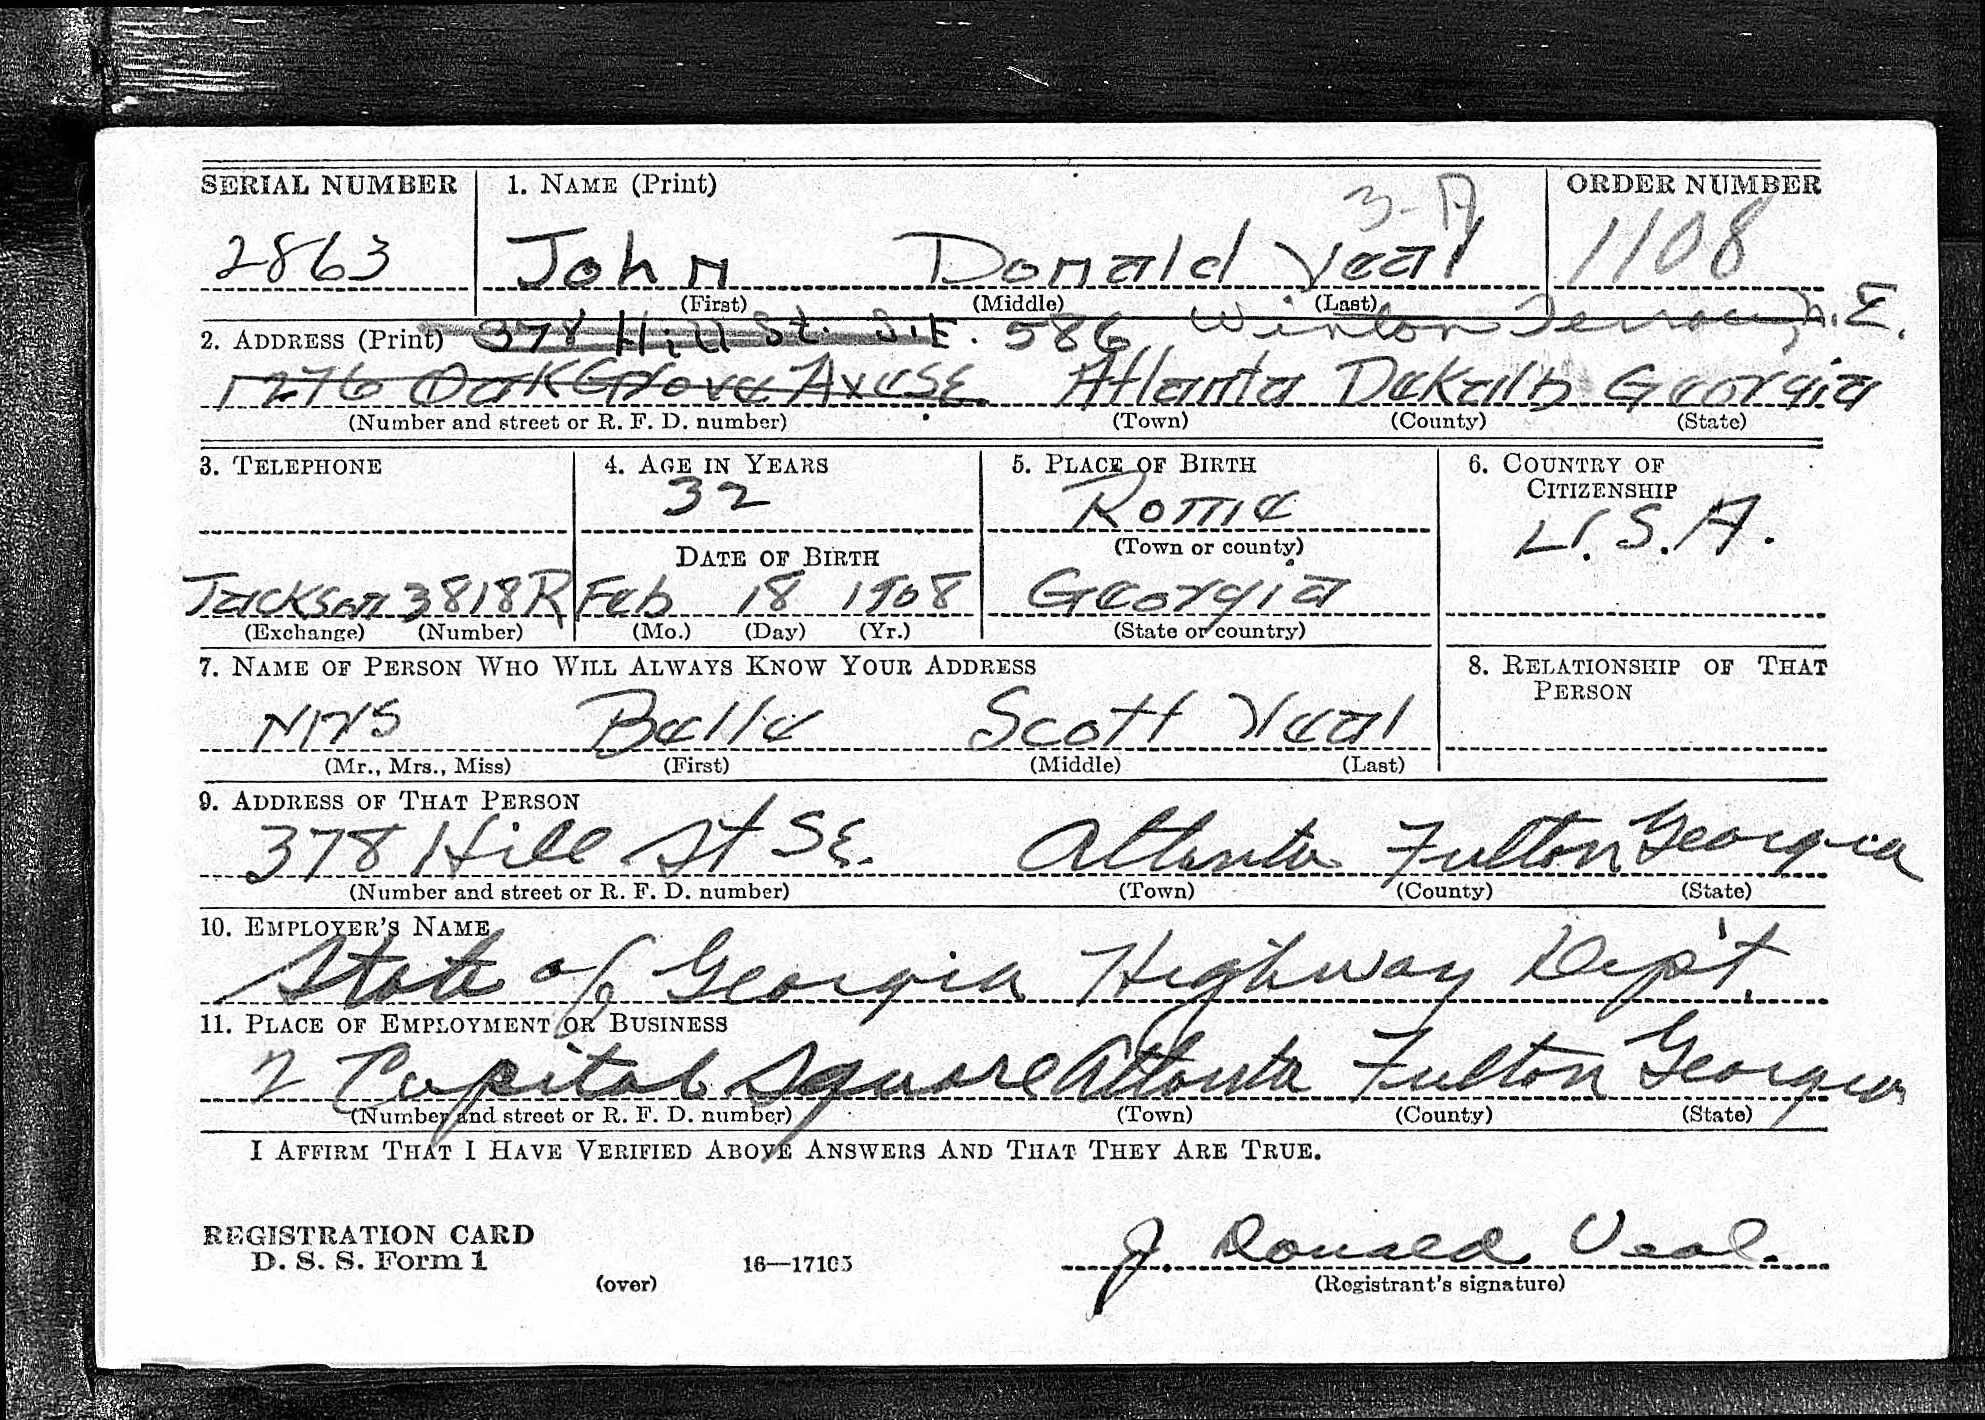 SERIAL NUMBER 1. NAME (Print) 3-A ORDER NUMBER
2863 John Donald Veal 1108
(First) (Middle) (Last)
2. ADDRESS (Print) 378 Hill St. S.E. 586 Winton Terrace N.E.
1276 Oak Grove Ave SE Atlanta DeKalb Georgia
(Number and street or R. F. D. number) (Town) (County) (State)
3. TELEPHONE 4. AGE IN YEARS 5. PLACE OF BIRTH 6. COUNTRY OF
CITIZENSHIP
32 Rome U.S.A.
DATE OF BIRTH (Town or county)
Jackson 3818R Feb 18 1908 Georgia
(Exchange) (Number) (Mo.) (Day) (Yr.) (State or country)
7. NAME OF PERSON WHO WILL ALWAYS KNOW YOUR ADDRESS 8. RELATIONSHIP OF THAT
PERSON
Mrs Belle Scott Veal
(Mr., Mrs., Miss) (First) (Middle) (Last)
9. ADDRESS OF THAT PERSON
378 Hill St SE. Atlanta Fulton Georgia
(Number and street or R. F. D. number) (Town) (County) (State)
10. EMPLOYER'S NAME
State of Georgia Highway Dep't.
11. PLACE OF EMPLOYMENT OR BUSINESS
2 Capitol Square Atlanta Fulton Georgia
(Number and street or R. F. D. number) (Town) (County) (State)
I AFFIRM THAT I HAVE VERIFIED ABOVE ANSWERS AND THAT THEY ARE TRUE.
REGISTRATION CARD
D. S. S. Form 1 16—17105 J. Donald Veal.
(over) (Registrant's signature)